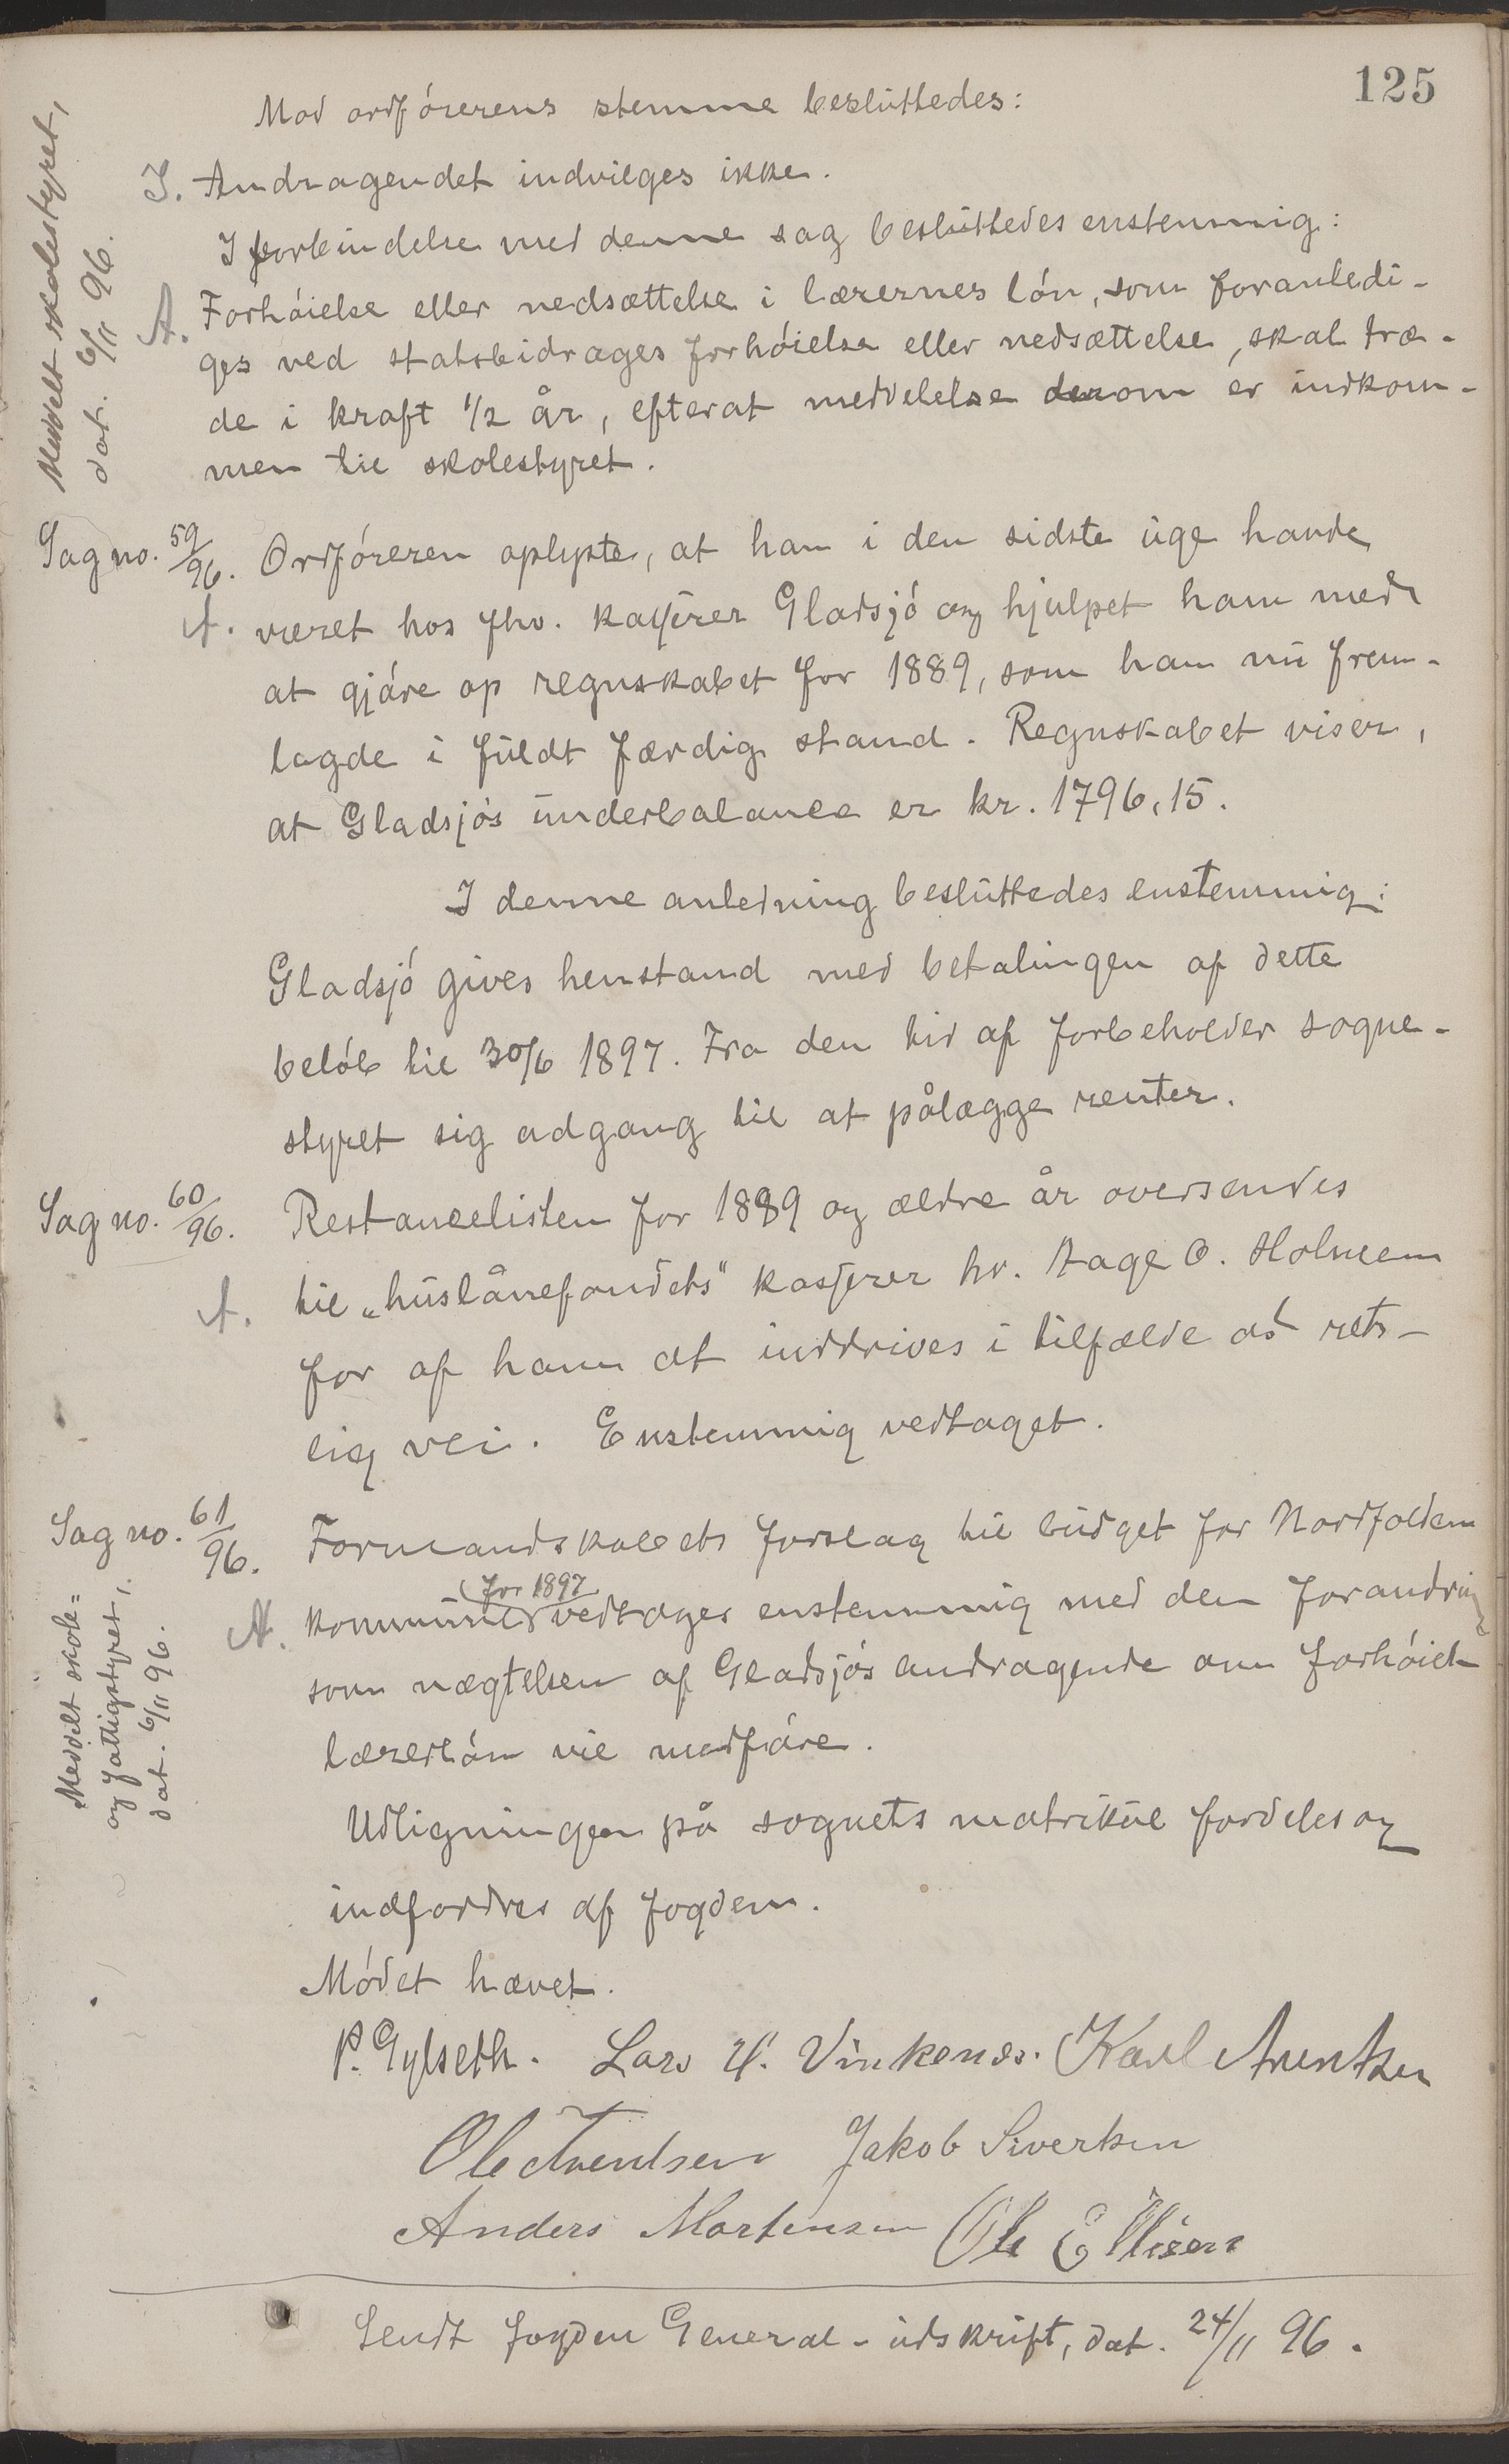 125
Mod ordførerens stemme besluttedes:
Meddelt skolestyret,
dat. 6/11 96.
I. Andragendet indvilges ikke.
I forbindelse med denne sag besluttedes enstemmig:
A. Forhøielse eller nedsættelse i lærernes løn, som foranledi-
ges ved statsbidrages forhøielse eller nedsættelse, skal træ-
de i kraft 1/2 år, efterat meddelelse derom er indkom-
men til skolestyret.
Sag no. 59/96. Ordføreren oplyste, at han i den sidste uge havde
A. været hos fhv. kasserer Gladsjø og hjulpet ham med
at gjøre op regnskabet for 1889, som han nu frem-
lagde i fuldt færdig stand. Regnskabet viser,
at Gladsjøs underbalance er kr. 1796,15.
I denne anledning besluttedes enstemmig:
Gladsjø gives henstand med betalingen af dette
beløb til 30/6 1897. Fra den tid af forbeholder sogne-
styret sig adgang til at pålægge renter.
Sag no. 60/96. Restancelisten for 1889 og ældre år oversendes
A. til „huslånefondets" kasserer hr. Hage O. Holmem
for af ham at inddrives i tilfælde ad rets-
lig vei. Enstemmig vedtaget.
Sag no. 61/96. Formandskabets forslag til budget for Nordfolden
A. kommune (for 1897) vedtages enstemmig med den forandring
som nægtelsen af Gladsjøs andragende om forhøiet
lærerløn vil medføre.
Meddelt skole=
og fattigstyret,
dat. 6/11 96.
Udligningen på sognets matrikul fordeles og
indfordres af fogden.
Mødet hævet.
P. Gylseth. Lars H. Vinkenes. Karl Arentsen
Ole Arentsen Jakob Sivertsen
Anders Martensen Ole Ellisen
Sendt fogden General-udskrift, dat. 24/11 96.